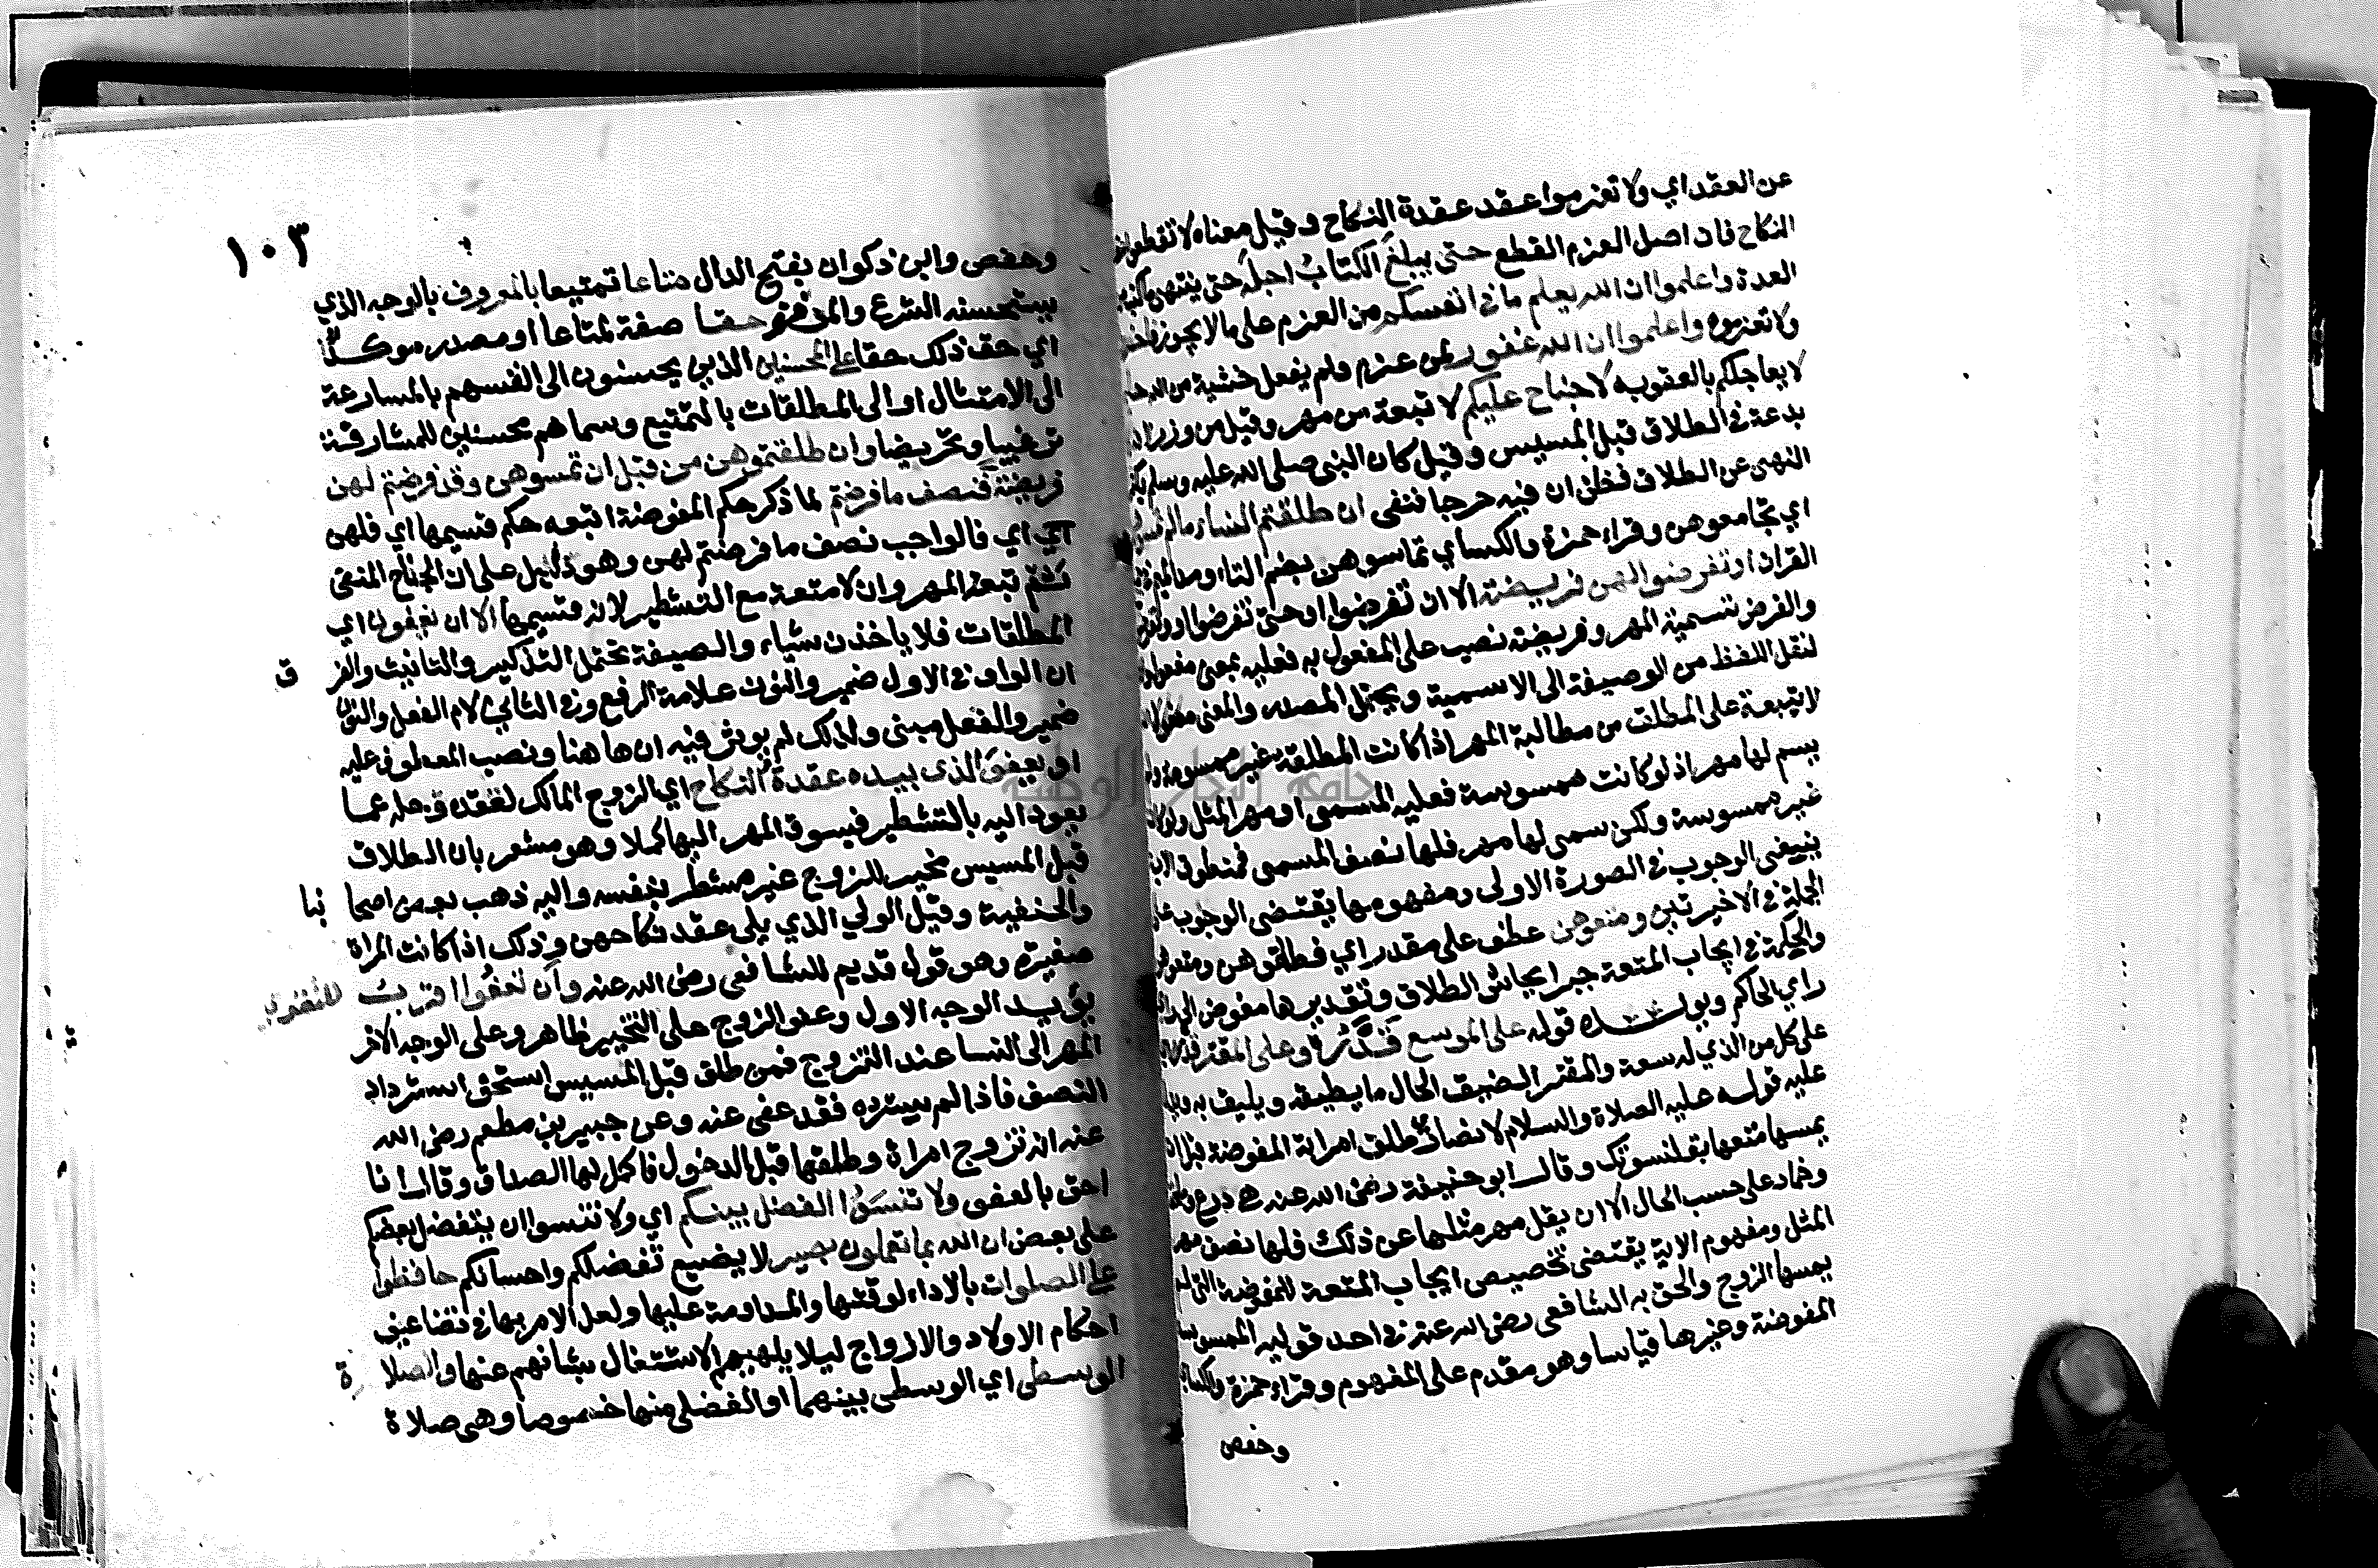 عن العقد اي ولا تعزموا عقد عقدة النكاح وقيل معناه لا تقطعوا
النكاح فان اصل العزم القطع حتى يبلغ الكتاب اجله حتى ينتهي
العدة واعلموا ان الله يعلم ما في انفسكم من العزم على ما لا يجوز
ولا تعزموه واعلموا ان الله غفور لمن عزم ولم يفعل خشية من الله
لا يعاجلكم بالعقوبه لا جناح عليكم لا تبعة من مهر وقيل من وزر
بدعة في الطلاق قبل المسيس وقيل كان النبي صلى الله عليه وسلم يكثر
النهي عن الطلاق فظن ان فيه حرجا فنفى ان طلقتم النساء مالم
اي تجامعوهن وقراء حمزة والكساي تماسوهن بضم التاء ومد الميم
القران او تفرضوا لهن فريضة الا ان تفرضوا او حتى تفرضوا
والفرض تسمية المهر وفريضة نصب على المفعول به فعلية بمعنى
لنقل اللفظ من الوصفية الى الاسمية ويحتمل المصدر والمعنى
لا تبعة على المطلق من مطالبة المهر اذا كانت المطلقة غير ممسوسة
يسم لها مهر اذ لو كانت ممسوسة فعليه المسمى او مهر المثل ولو
غير ممسوسة ولكن سمى لها مهر فلها نصف المسمى فمنطوق
ينفي الوجوب في الصورة الاولى ومفهومها يقتضى الوجوب
الجملة في الاخيرتين ومتعوهن عطف على مقدر اي فطلقوهن
والحكمة في ايجاب المتعة جبر ايحاش الطلاق وتقديرها مفوض الى
راي الحاكم ويويده قوله على الموسع قدره وعلى المقتر
على كل من الذي له سعة والمقتر الضيق الحال ما يطيقه ويليق به
عليه قوله عليه الصلاة والسلام لانصارى طلق امراته المفوضة قبل ان
يمسها متعها بقلنسوتك وقال ابو حنيفة رضى الله عنه هي درع
وخمار على حسب الحال الا ان يقل مهر مثلها عن ذلك فلها نصف مهر
المثل ومفهوم الاية يقتضى تخصيص ايجاب المتعة للمفوضة التي لم
يمسها الزوج والحق به الشافعى رضى الله عنه في احد قوليه
المفوضة وغيرها قياسا وهو مقدم على المفهوم وقراء حمزة والكساي
وحفص
١٠٣
وحفص وابن ذكوان بفتح الدال متاعا تمتيعا بالمعروف بالوجه الذي
يستحسنه الشرع والمروة حقا صفة لمتاعا او مصدر موكد
اي حق ذلك حقا على المحسنين الذين يحسنون الى انفسهم بالمسارعة
الى الامتثال او الى المطلقات بالتمتيع وسماهم محسنين للمشارفة
ترغيبا وتحريضا وان طلقتموهن من قبل ان تمسوهن وقد فرضتم لهن
فريضة فنصف ما فرضتم لما ذكر حكم المفوضة اتبعه حكم قسيمها اي فلهن
اي فالواجب نصف ما فرضتم لهن وهو دليل على ان الجناح المنفي
ثم تبعة المهر وان لا متعة مع التشطير لانه قسيمها الا ان يعفون اي
المطلقات فلا ياخذن شياء والصيغة تحتمل التذكير والتانيث والفر ق
ان الواو في الاول ضمير والنون علامة الرفع وفي الثاني لام الفعل والنون
ضمير والفعل مبنى ولذلك لم يوثر فيه ان هاهنا ونصب المعطوف عليه
او يعفو الذى بيده عقدة النكاح اي الزوج المالك لعقده وحله عما
يعود اليه بالتشطير فيسوق المهر اليها كملا وهو مشعر بان الطلاق
قبل المسيس مخير للزوج غير مشطر بنفسه واليه ذهب بعض اصحا بنا
والحنفية وقيل الولي الذي يلى عقد نكاحهن وذلك اذا كانت المراة
صغيرة وهو قول قديم للشافعى رضى الله عنه وان تعفوا اقرب للتقوي
يؤيد الوجه الاول وعفو الزوج على التخيير ظاهر وعلى الوجه الاخر
المهر الى النسا عند التزوج فمن طلق قبل المسيس استحق استرداد
النصف فاذا لم يسترده فقد عفى عنه وعن جبير بن مطعم رضى الله
عنه انه تزوج امراة وطلقها قبل الدخول فاكمل لها الصداق وقال انا
احق بالعفو ولا تنسوا الفضل بينكم اي ولا تنسوا ان يتفضل بعضكم
على بعض ان الله بما تعملون بصير لا يضيع تفضلكم واحسانكم حافظوا
على الصلوات بالاداء لوقتها والمداومة عليها ولعل الامر بها في تضاعيف
احكام الاولاد والازواج ليلا يلهيهم الاشتغال بشانهم عنها والصلا ة
الوسطى اي الوسطى بينهما او الفضلى منها خصوصا وهي صلاة